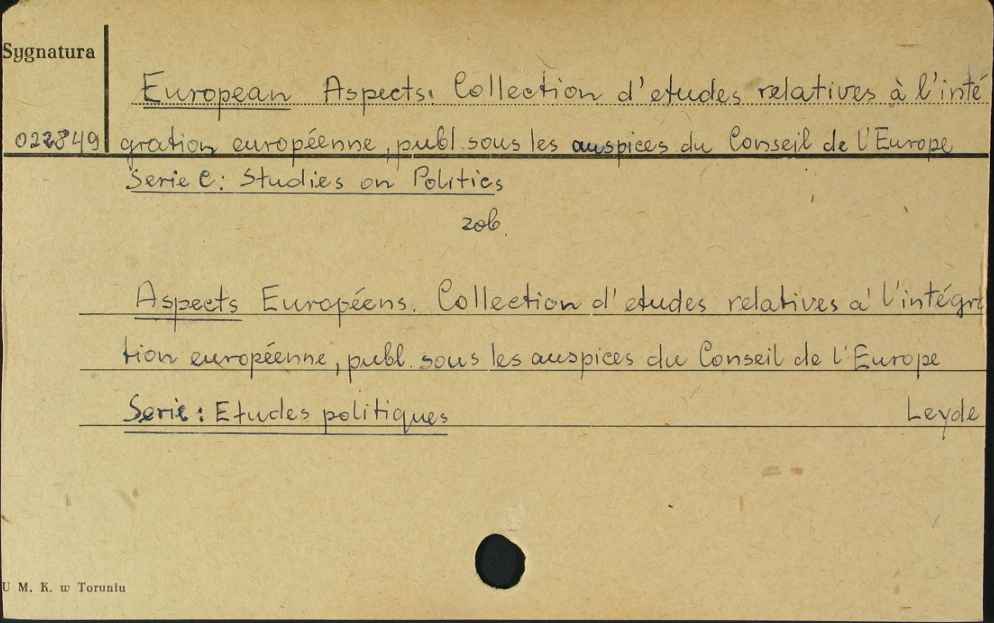 Sygnatura
European Aspects. Collection d'etudes relatives à l'inté
022849 gration européenne, publ. sous les auspices du Conseil de l'Europe
Serie C: Studies on Politics
zob.
Aspects Européens. Collection d'etudes relatives a' l'intégra
tion européenne, publ. sous les auspices du Conseil de l'Europe
Serie: Etudes politiques Leyde
U M. K. w Toruniu